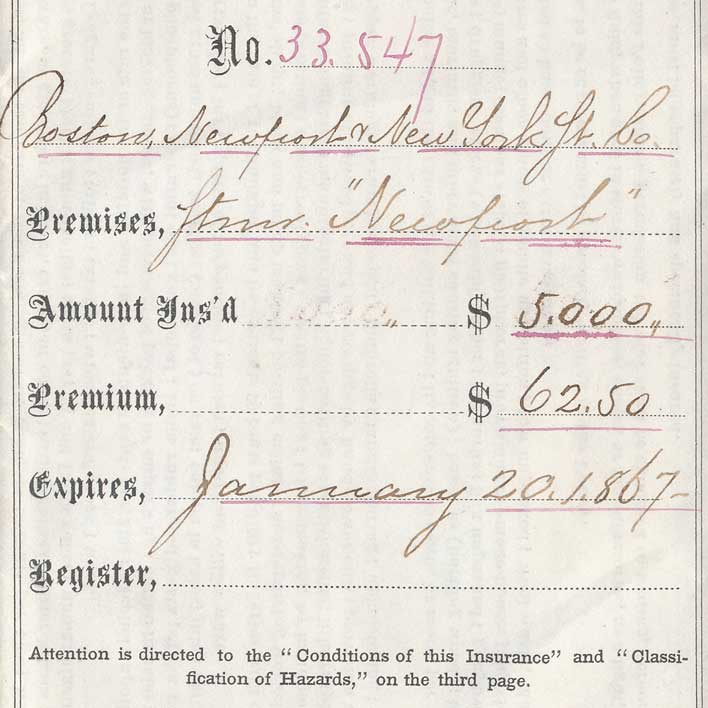 No. 33.547
Boston, Newport & New York St. Co.
Premises, Stmr. "Newport"
Amount Ins'd 5.000,, $ 5.000,,
Premium, $ 62.50
Expires, January 20.1.867-
Register,
Attention is directed to the "Conditions of this Insurance" and "Classi-
fication of Hazards," on the third page.